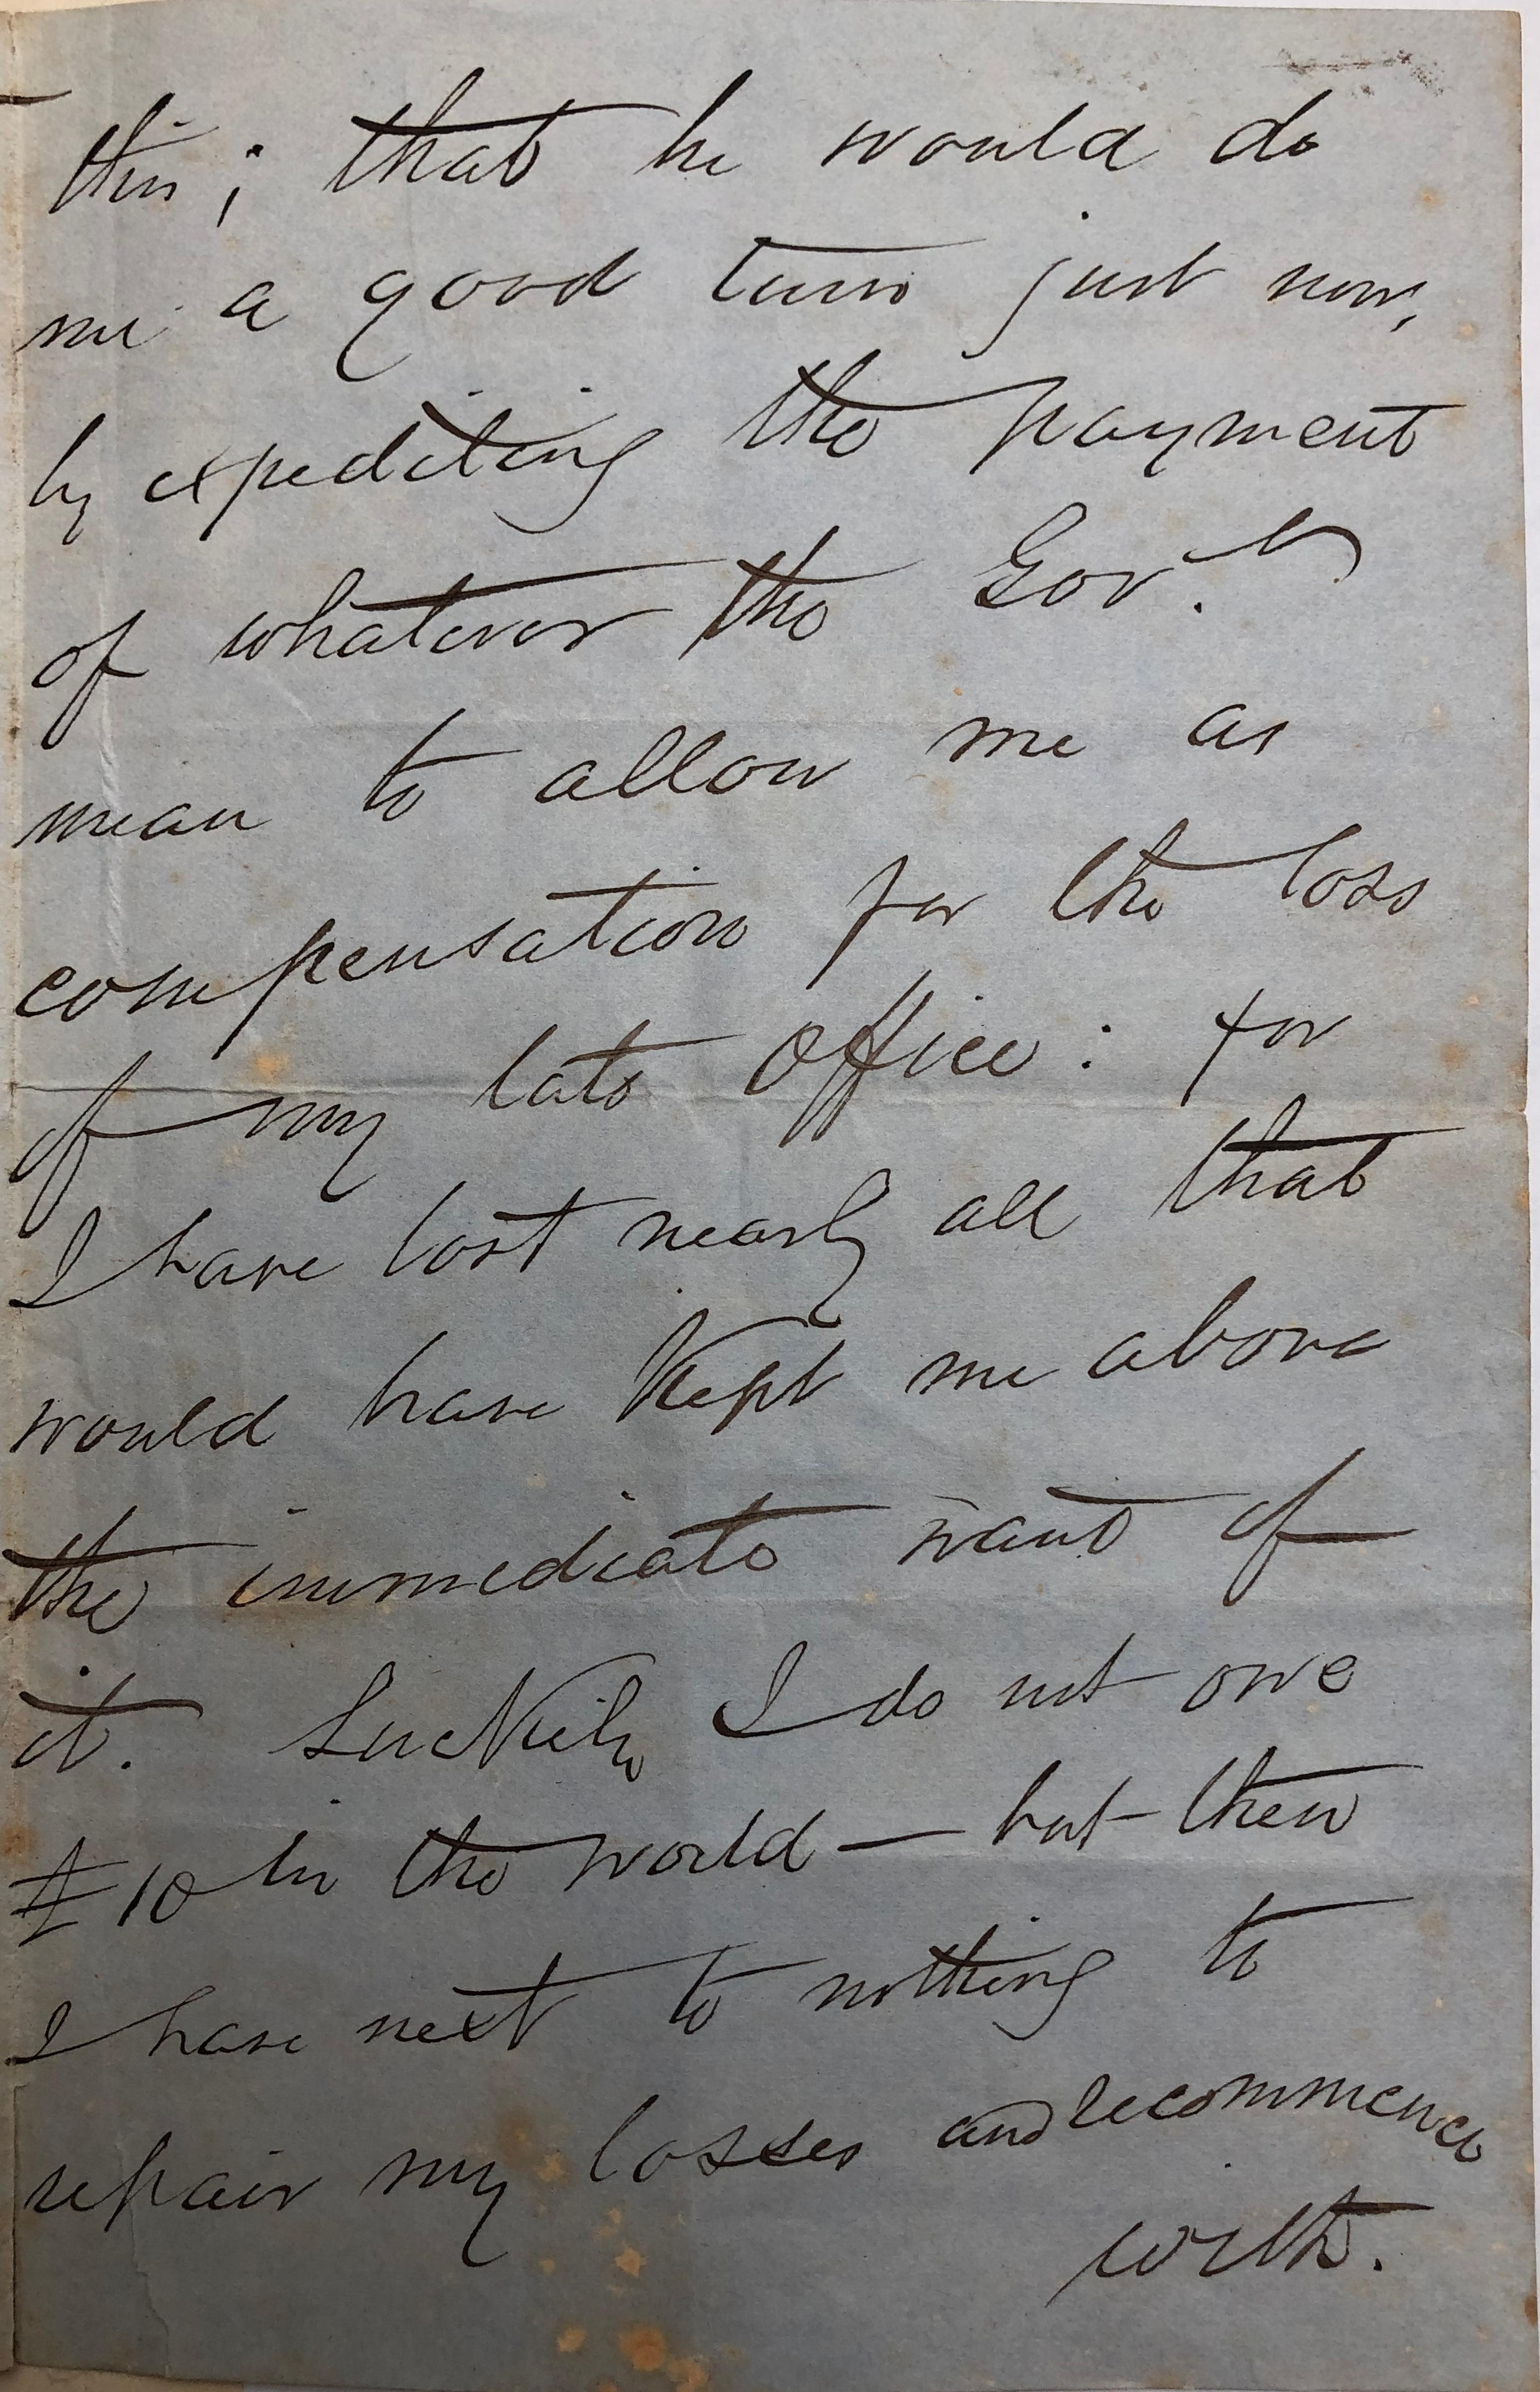 this; that he would do
me a good turn just now,
by expediting the payment
of whatever the Gov.t
mean to allow me as
compensation for the loss
of my late office: for
I have lost nearly all that
would have kept me above
the immediate want of
it. Luckily I do not owe
£10 in the world — but then
I have next to nothing to
repair my losses and recommence
with.